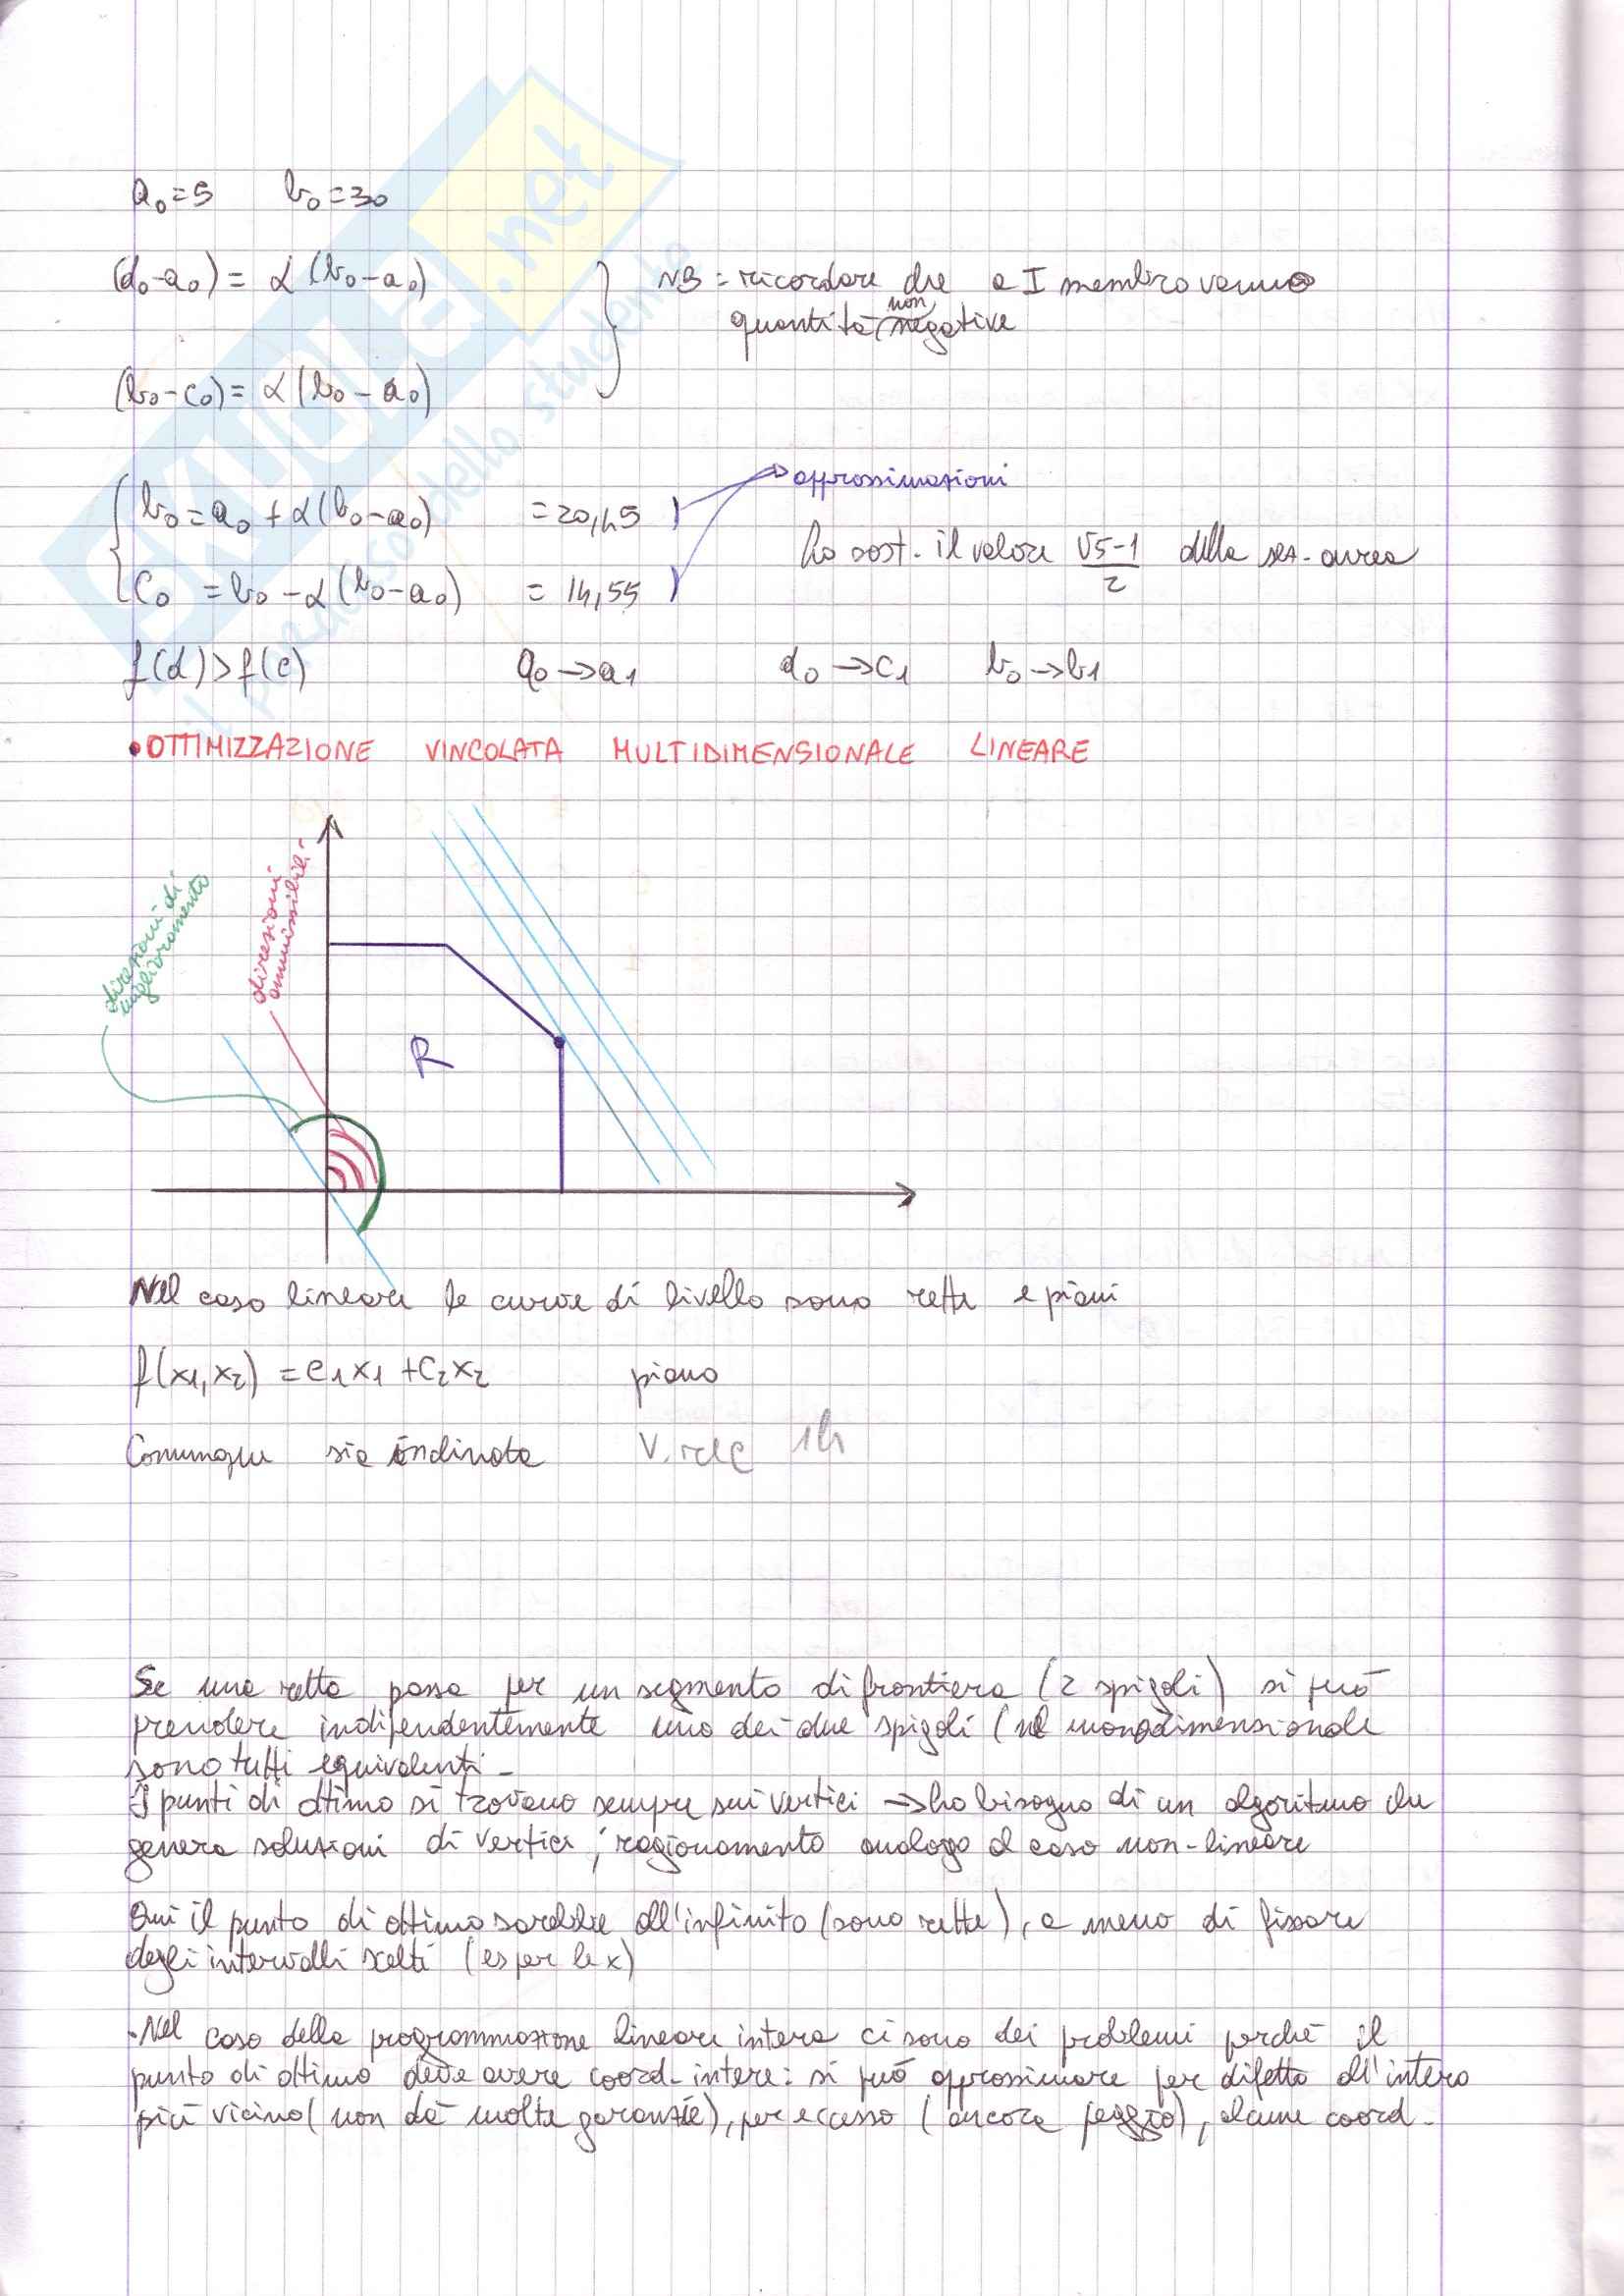 a₀=5 b₀=30
(d₀-a₀) = α (b₀-a₀)
NB = ricordare che a I membro vanno
quantità non negative
(b₀-c₀) = α (b₀-a₀)
approssimazioni
b₀ = a₀ + α(b₀-a₀) = 20,45
ho sost. il valore (√5-1)/2 della sez. aurea
c₀ = b₀ - α (b₀-a₀) = 14,55
f(d) > f(c) a₀ → a₁ d₀ → c₁ b₀ → b₁
• OTTIMIZZAZIONE VINCOLATA MULTIDIMENSIONALE LINEARE
direzioni di
miglioramento
direzioni
ammissibili
R
Nel caso lineare le curve di livello sono rette e piani
f(x₁,x₂) = c₁x₁ + c₂x₂ piano
Comunque sia inclinata V. rec 1h
Se una retta passa per un segmento di frontiera (2 spigoli) si può
prendere indipendentemente uno dei due spigoli (nel monodimensionale
sono tutti equivalenti.
I punti di ottimo si trovano sempre sui vertici → ho bisogno di un algoritmo che
genera soluzioni di vertici, ragionamento analogo al caso non-lineare
Qui il punto di ottimo sarebbe all'infinito (sono rette), a meno di fissare
degli intervalli scelti (es per le x)
• Nel caso della programmazione lineare intera ci sono dei problemi perché il
punto di ottimo deve avere coord. intere: si può approssimare per difetto all'intero
più vicino (non dà molte garanzie), per eccesso (ancora peggio), alcune coord.
SKUOLA.net
il paradiso dello studente